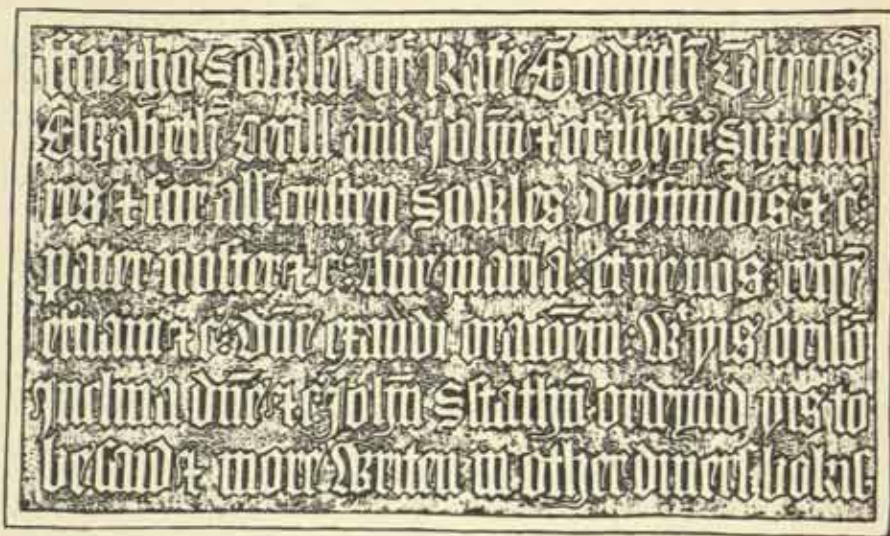 ffor tho Sowles of Rafe Godyth Thomᵃˢ
Elyzabeth Cecill and John & of theyr Successo
res & for all cristen Sowles Depfundis & c̄
pater noster & c̄ Aue maria et ne nos reqē
etnam & c̄ dn̄e exaudi oracōem Wᵗ yis orisō
Inclina dn̄e & c̄ John Sstathū ordeynd yis to
be Sayd & more Writen in other diuers bokis